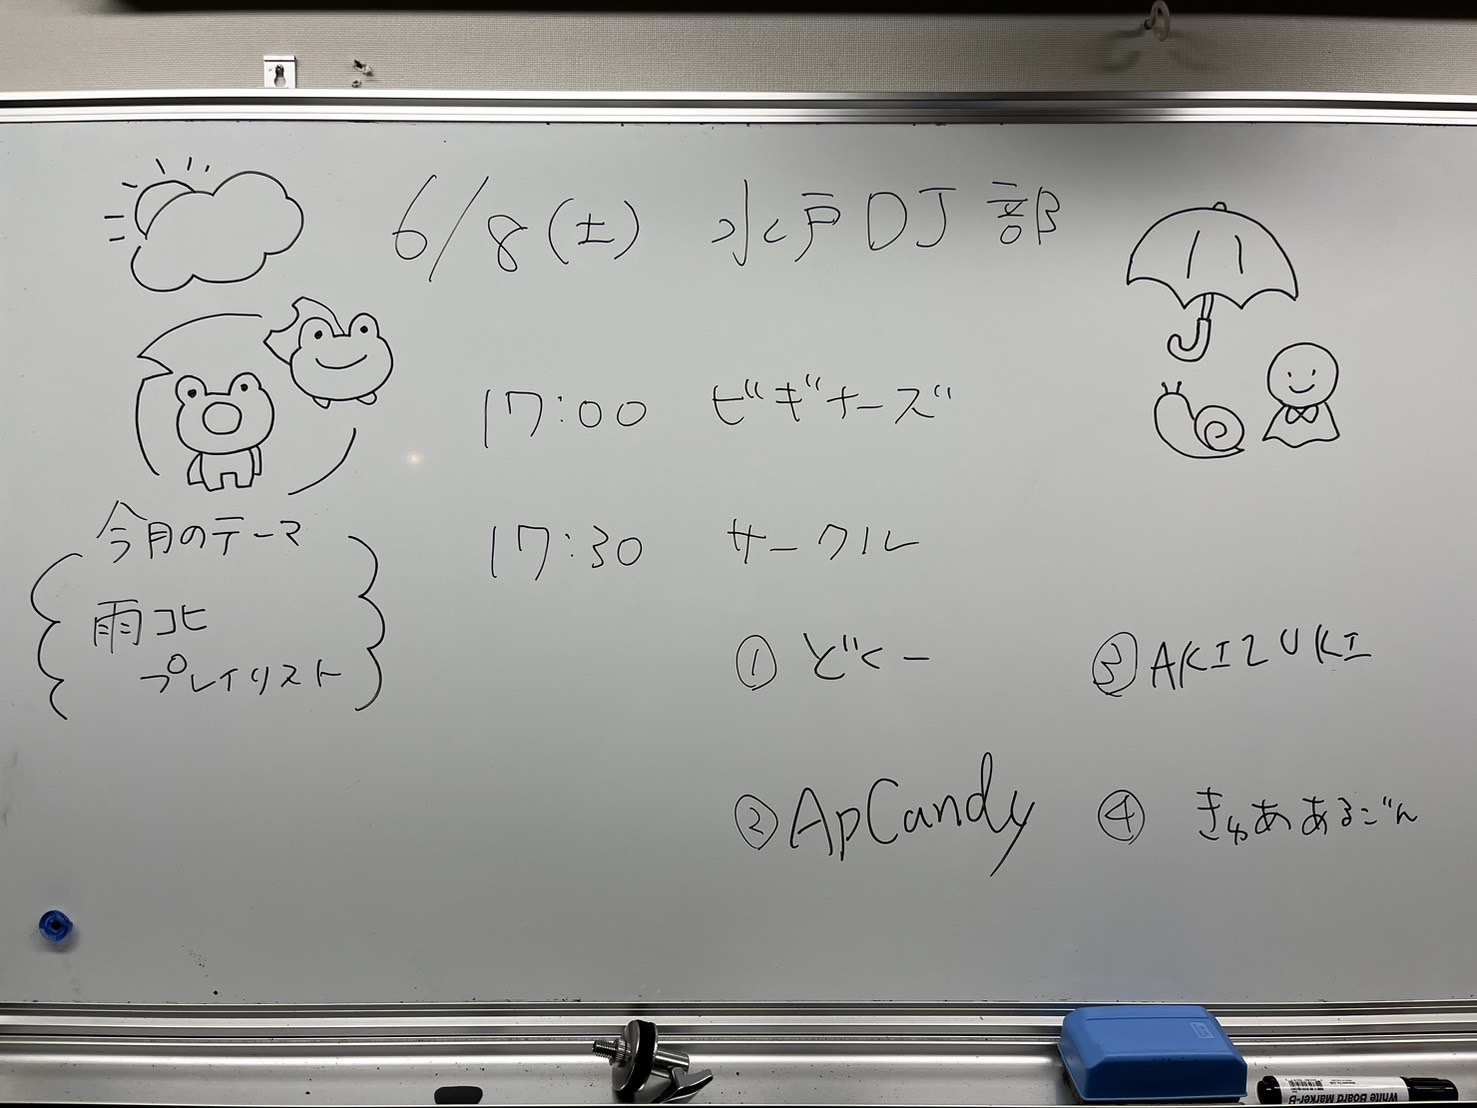 6/8(土) 水戸DJ部
17:00 ビギナーズ
17:30 サークル
① どくー
② ApCandy
③ AKIZUKI
④ きゅああるごん
今月のテーマ
雨コヒ
プレイリスト
White Board Marker-B